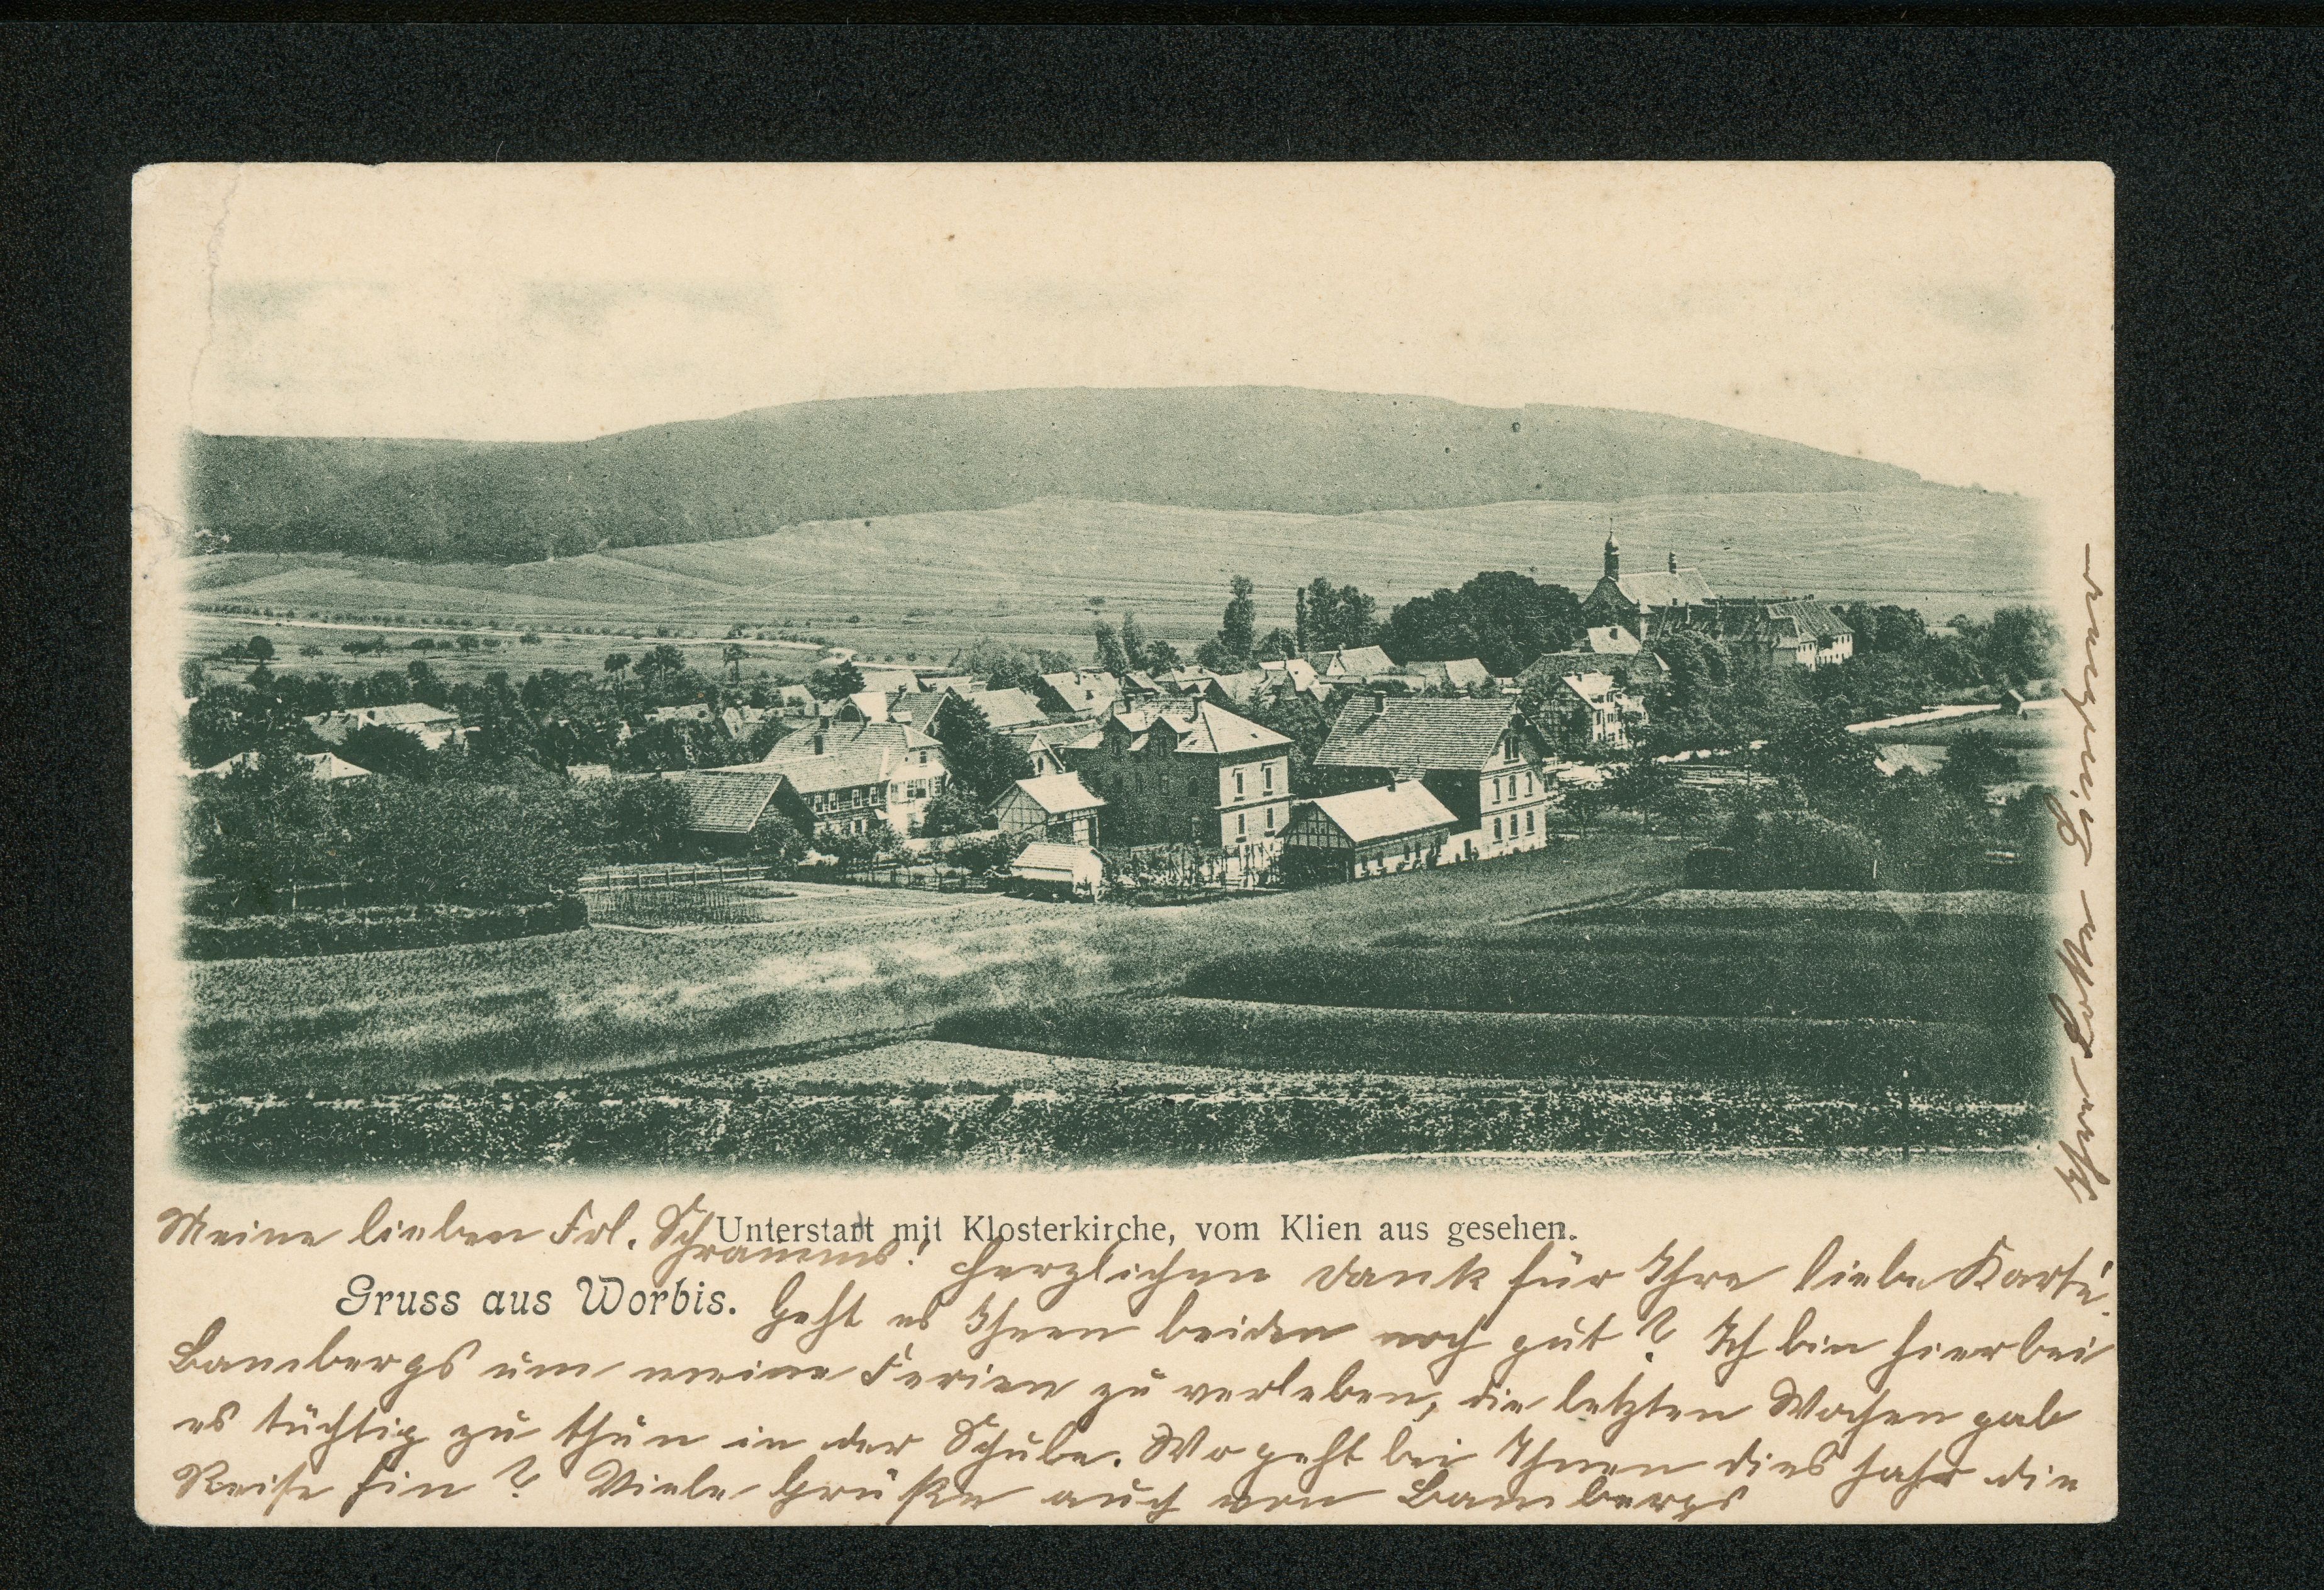 Unterstadt mit Klosterkirche, vom Klien aus gesehen.
Gruss aus Worbis.
Meine lieben Frl. Schramms! Herzlichen Dank für Ihre liebe Karte.
Geht es Ihnen beiden noch gut? Ich bin hier bei
Bambergs um meine Ferien zu verleben, die letzten Wochen gab
es tüchtig zu thun in der Schule. Wo geht bei Ihnen dies Jahr die
Reise hin? Viele Grüße auch von Bambergs
Ihre